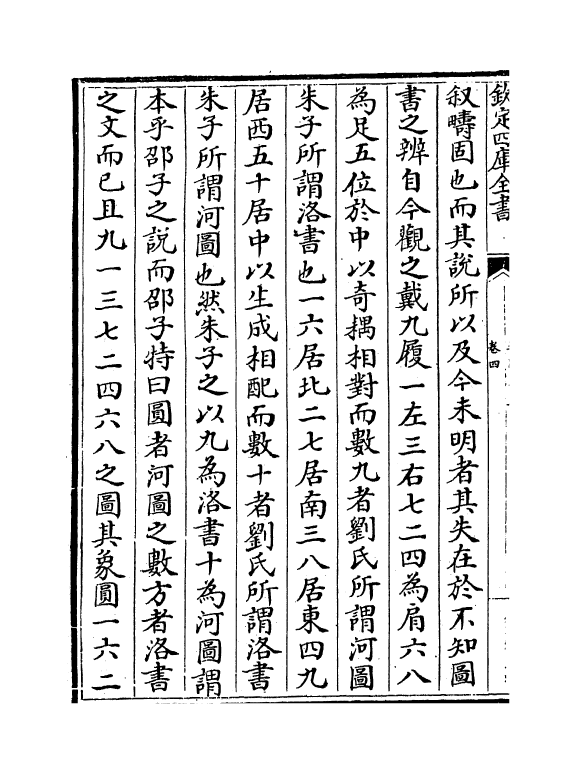 欽定四庫全書
卷四
叙疇固也而其說所以及今未明者其失在於不知圖
書之辨自今觀之戴九履一左三右七二四為肩六八
為足五位於中以奇耦相對而數九者劉氏所謂河圖
朱子所謂洛書也一六居北二七居南三八居東四九
居西五十居中以生成相配而數十者劉氏所謂洛書
朱子所謂河圖也然朱子之以九為洛書十為河圖謂
本乎邵子之說而邵子特曰圓者河圖之數方者洛書
之文而已且九一三七二四六八之圖其象圓一六二